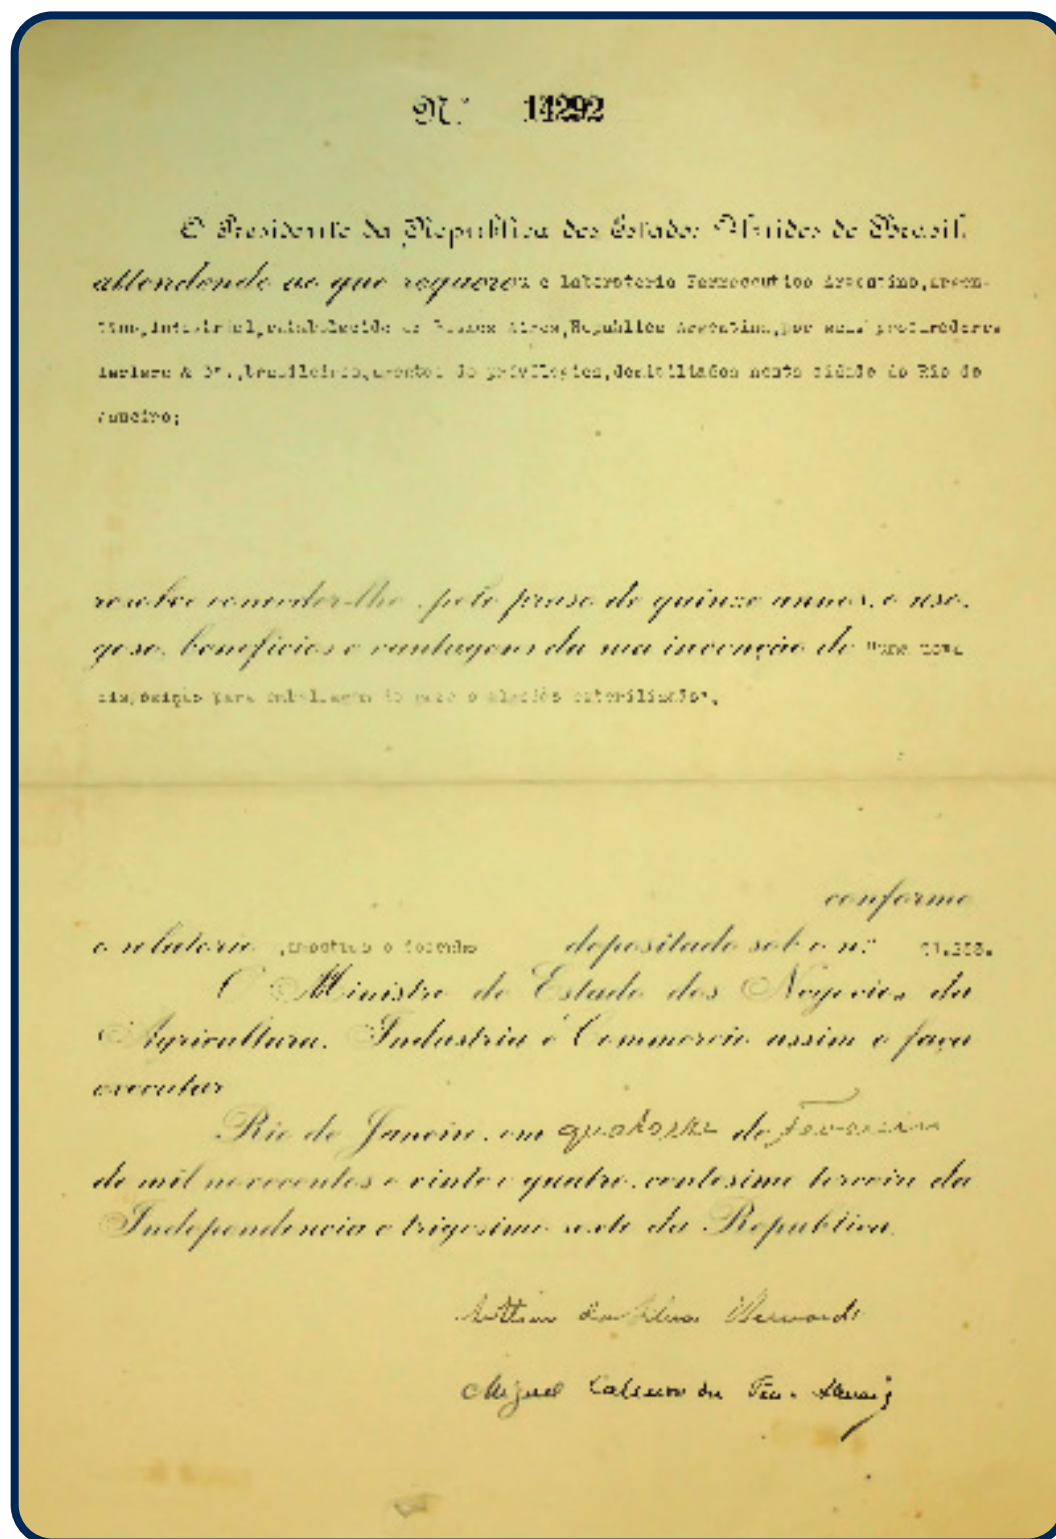 N.º 14292
O Presidente da Republica dos Estados Unidos do Brasil,
attendendo ao que requereu o Laboratorio Farmaceutico Argentino, argen-
tino, industrial, estabelecido em Buenos Aires, Republica Argentina, por seus procuradores
Leclerc & Cª., brasileiros, agentes de privilegios, domiciliados nesta cidade do Rio de
Janeiro;
resolve conceder-lhe, pelo praso de quinze annos, o uso,
goso, beneficios e vantagens da sua invenção de "uma nova
disposição para embalagem de gaze e algodão esterilisação".
conforme
o relatorio, amostras e desenho depositado sob o n.º
O Ministro de Estado dos Negocios da
Agricultura, Industria e Commercio assim o faça
executar
Rio de Janeiro, em quatorze de Fevereiro
de mil novecentos e vinte e quatro, centesimo terceiro da
Independencia e trigesimo sexto da Republica.
Arthur da Silva Bernardes
Miguel Calmon du Pin e Almeida